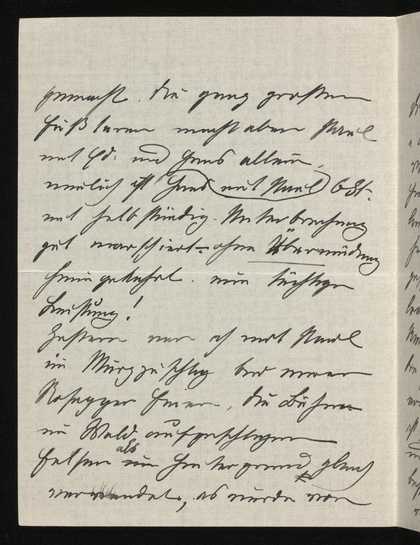 gemacht. Die ganz großen
Fußtouren macht aber Karl
mit Ed. und Hans allein,
neulich ist Hans mit Karl 6 St.
mit halbstündig. Unterbrechung
gut marschiert – ohne Übermüdung
heimgekehrt. eine tüchtige
Leistung!
Gestern war ich mit Karl
in Mürzzuschlag bei einer
Rosegger Feier, die Bühne
im Wald aufgeschlagen
Felsen als Hintergrund gleich
verwendet, es wurde von